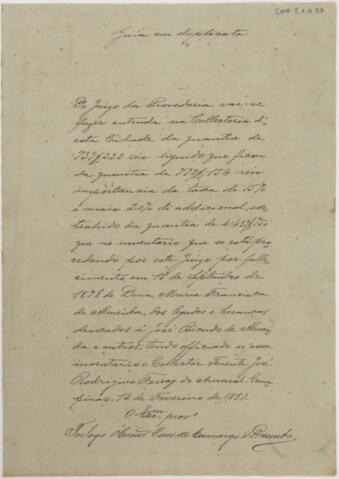 CMP 2.1.4.97
Guia em duplicata
Do Juizo da Provedoria vai-se
fazer entrada na Collectoria d'
esta Cidade da quantia de
737$222 reis liquido que ficou
da quantia de 777$154 reis
importancia da taxa de 15%
e mais 20% di addicional, ex-
trahido da quantia de
que no inventario que se está pro
cedendo por este Juizo por falle
cimento em 15 de Septembro de
1878 de Dona Maria Francisca
de Almeida, dos legados e heranças
deixados á José Bicudo de Almei
da e outros; tendo officiado n'esse
inventario o Collector Tenente José
Rodrigues Ferraz do Amaral. Cam
pinas, 14 de Fevereiro de 1881.
O Escm. prov.º
de Camargo